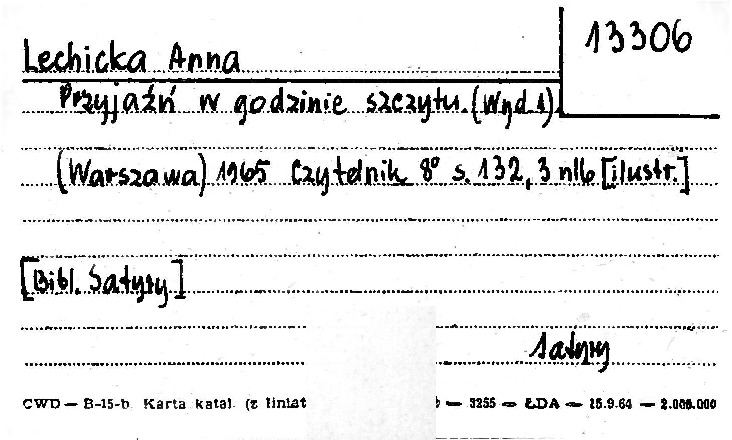 13306
Lechicka Anna
Przyjaźń w godzinie szczytu. (Wyd. 1).
(Warszawa) 1965 Czytelnik 8° s. 132, 3 nlb [ilustr.]
[Bibl. Satyry]
Satyry
CWD — B-15-b Karta katal. (z liniat — 3255 — ŁDA — 15.9.64 — 2.000.000